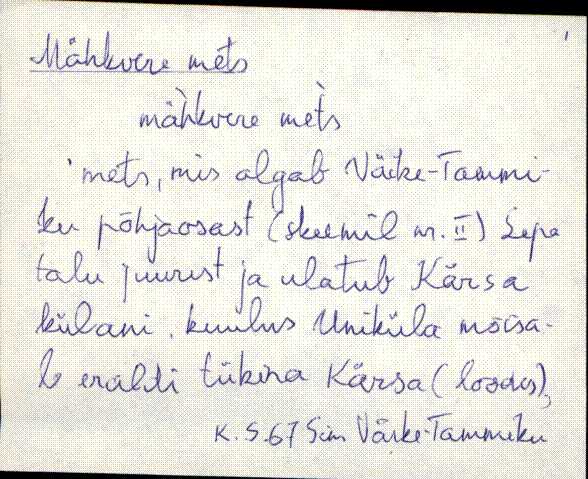 Mähkvere mets
mähkvere mets
'mets, mis algab Väike-Tammi-
ku põhjaosast (skeemil nr. II) Sepa
talu juurest ja ulatub Kärsa
külani. kuulus Uniküla mõisa-
le eraldi tükina Kärsa (loodes),
K. S. 67 Sim Väike-Tammiku